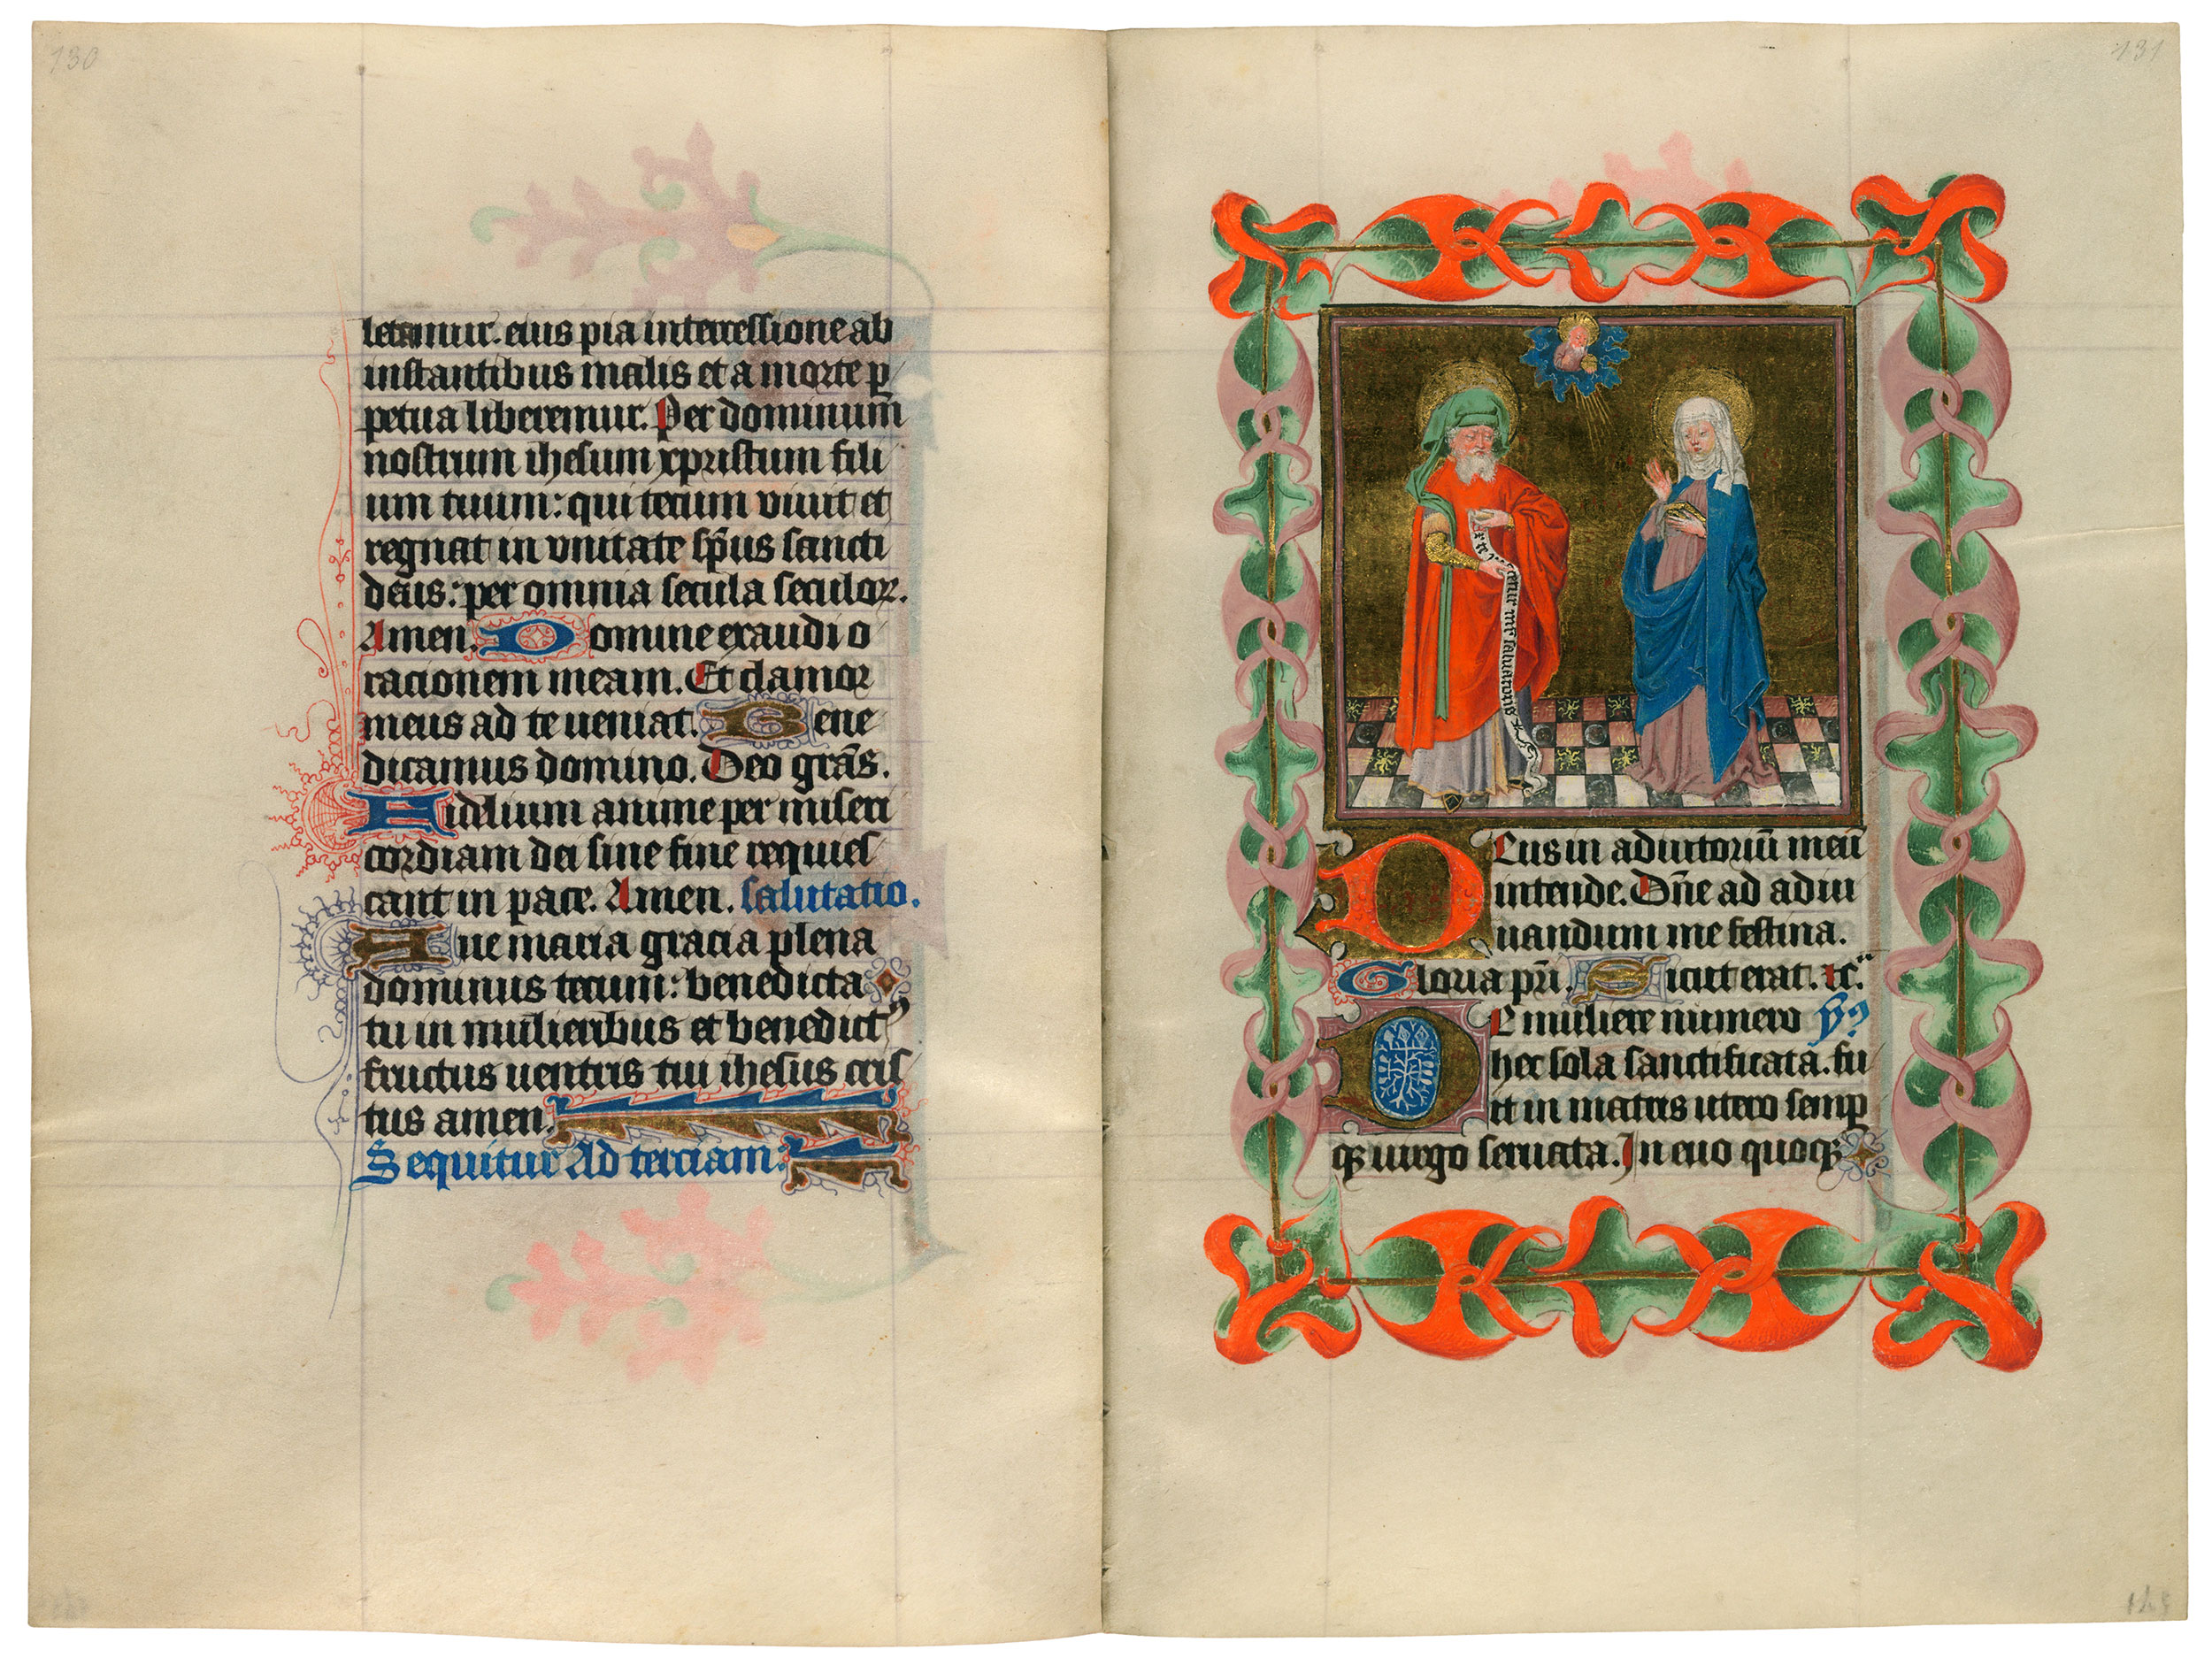 130
letamur. eius pia intercessione ab
instantibus malis et a morte ꝑ
petua liberemur. Per dominum̄
nostrum ihesum xpristum fili
um tuum: qui tecum viuit et
regnat in vnitate sp̄us sancti
deus: per omnia secula seculoꝝ.
Amen. Domine exaudi o
racionem meam. Et clamor
meus ad te ueniat. Bene
dicamus domino. Deo grās.
Fidelium anime per miseri
cordiam dei sine fine requies
cant in pace. Amen. salutatio.
Aue maria gracia plena
dominus tecum: benedicta
tu in mulieribus et benedictꝰ
fructus uentris tui ihesus cris
tus amen.
Sequitur Ad terciam:
131
Deus in adiutoriū meū
intende. Dn̄e ad adiu
uandum me festina.
Gloria pr̄i. Sicut erat. ꝛc̄.
De muliere numero ymꝰ
hec sola sanctificata. fu
it in matris utero semꝑ
qꝫ uirgo seruata. In euo quoqꝫ